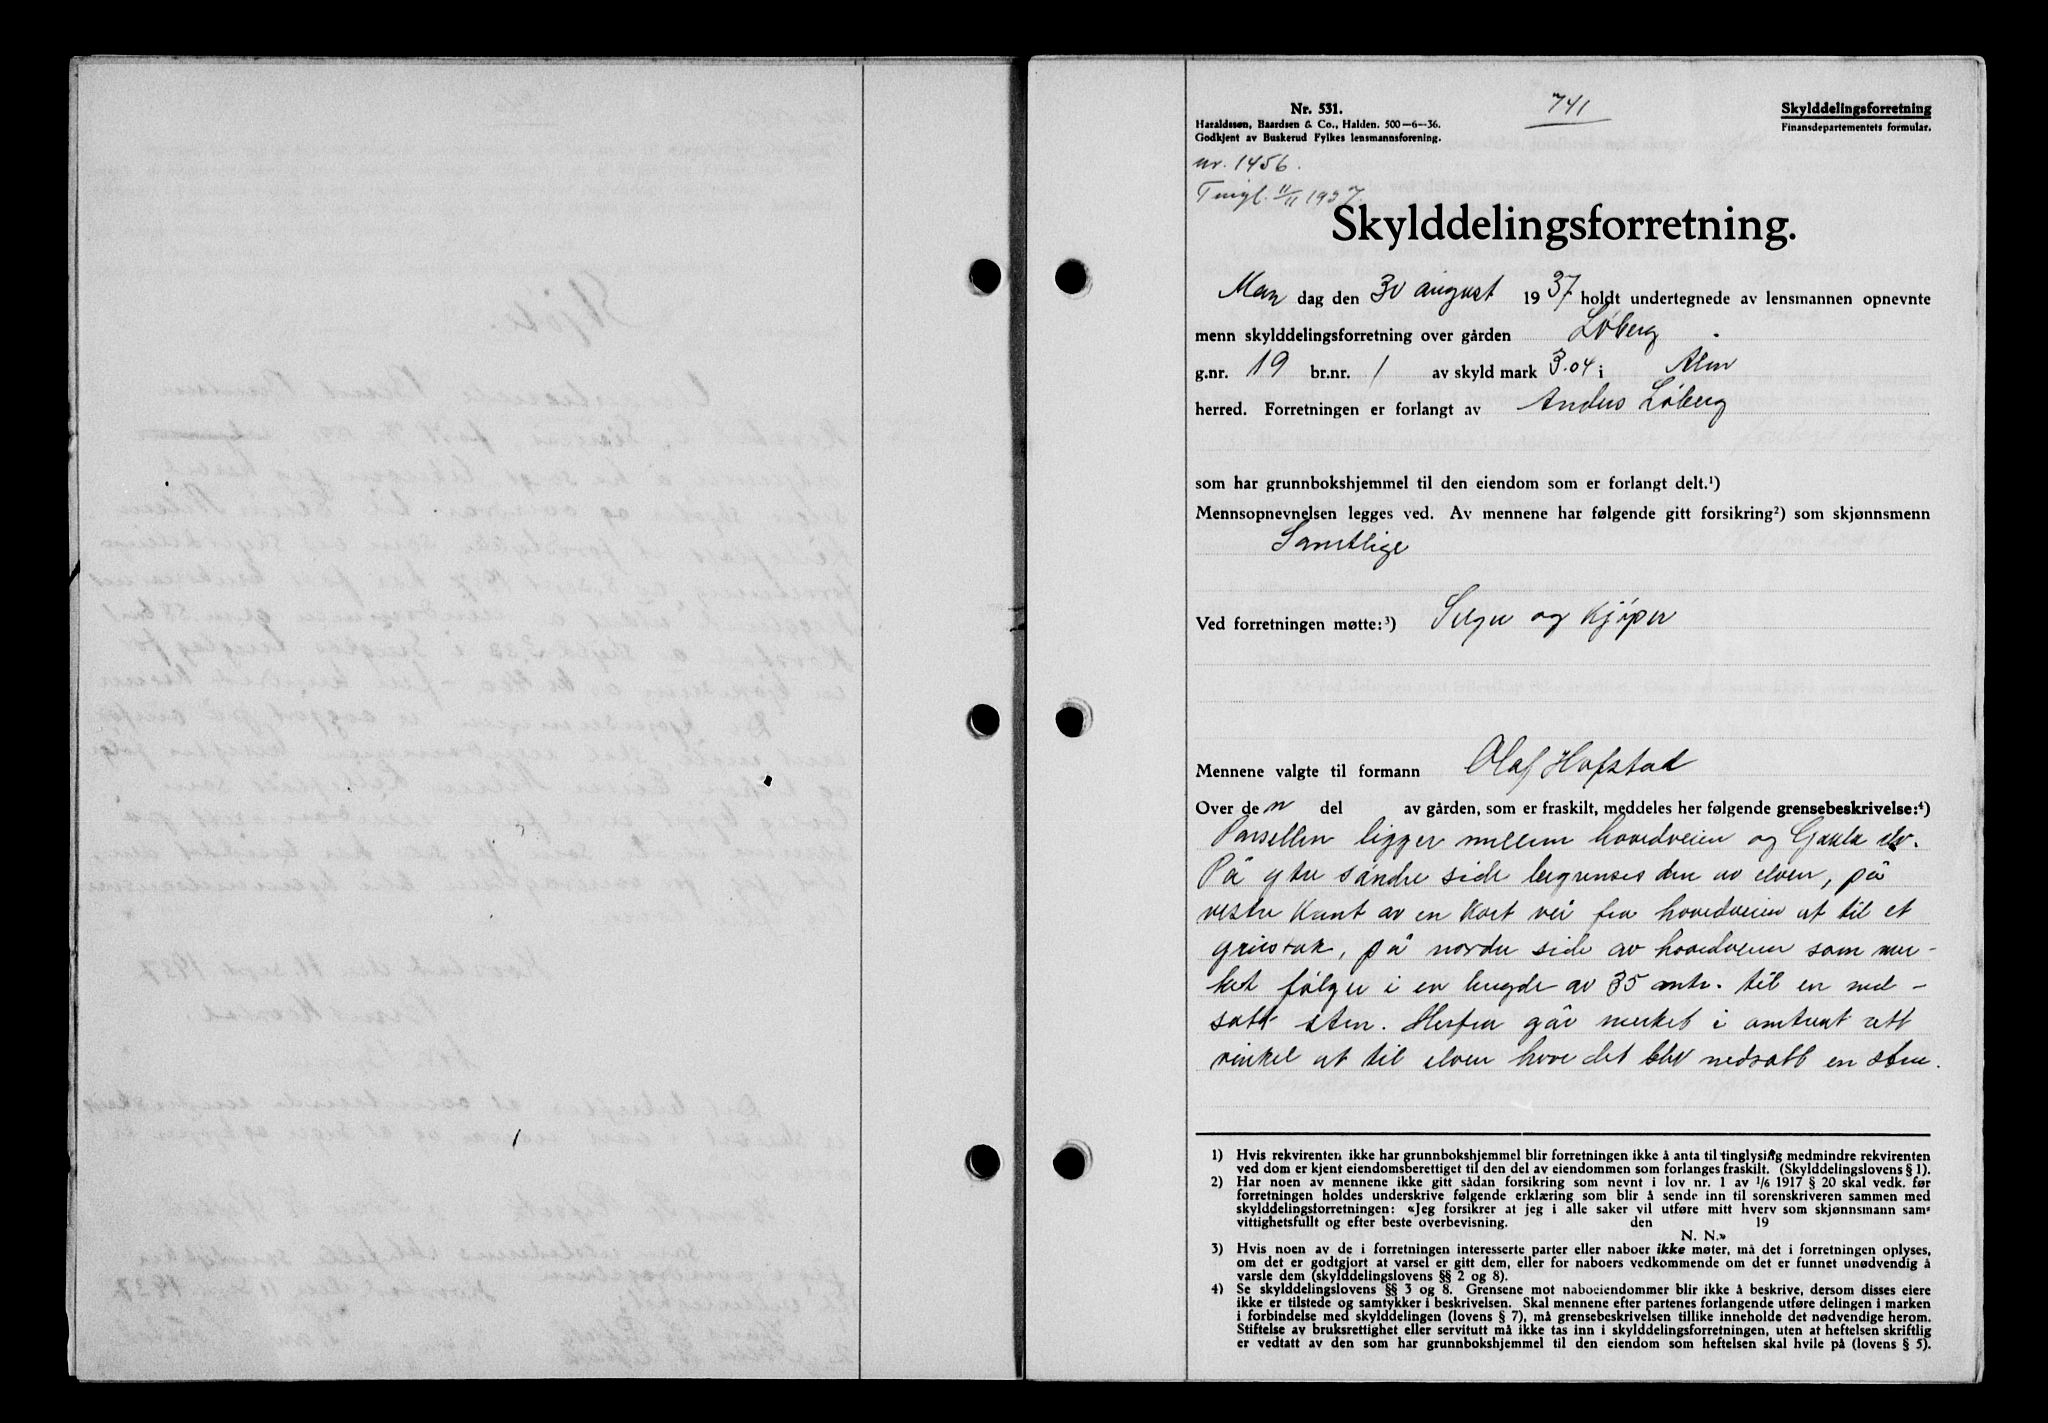 Nr. 531.
Haraldssøn, Baardsen & Co., Halden. 500—6—36.
Godkjent av Buskerud Fylkes lensmannsforening.
741
Skylddelingsforretning
Finansdepartementets formular.
nr. 1456.
Tingl. 11/11 1937.
Skylddelingsforretning.
Man dag den 30 august 1937 holdt undertegnede av lensmannen opnevnte
menn skylddelingsforretning over gården Løberg
g.nr. 19 br.nr. 1 av skyld mark 3.04 i Alen
herred. Forretningen er forlangt av Anders Løberg
som har grunnbokshjemmel til den eiendom som er forlangt delt.¹)
Mennsopnevnelsen legges ved. Av mennene har følgende gitt forsikring²) som skjønnsmenn
Samtlige
Ved forretningen møtte:³) Selger og kjøper
Mennene valgte til formann Olaf Hofstad
Over de n del av gården, som er fraskilt, meddeles her følgende grensebeskrivelse:⁴)
Parsellen ligger mellem hovedveien og Gaula elv.
På ytre søndre side begrenses den av elven, på
vestre kant av en kort vei fra hovedveien ut til et
grustak, på nordre side av hovedveien som mer-
ket følger i en lengde av 35 mtr. til en ned-
satt sten. Herfra går merket i omtrent rett
vinkel ut til elven hvor det blev nedsatt en sten.
1) Hvis rekvirenten ikke har grunnbokshjemmel blir forretningen ikke å anta til tinglysing medmindre rekvirenten
ved dom er kjent eiendomsberettiget til den del av eiendommen som forlanges fraskilt. (Skylddelingslovens § 1).
2) Har noen av mennene ikke gitt sådan forsikring som nevnt i lov nr. 1 av 1/6 1917 § 20 skal vedk. før
forretningen holdes underskrive følgende erklæring som blir å sende inn til sorenskriveren sammen med
skylddelingsforretningen: «Jeg forsikrer at jeg i alle saker vil utføre mitt hverv som skjønnsmann sam-
vittighetsfullt og efter beste overbevisning. den 19
N. N.»
3) Hvis noen av de i forretningen interesserte parter eller naboer ikke møter, må det i forretningen oplyses,
om det er godtgjort at varsel er gitt dem, eller for naboers vedkommende om det er funnet unødvendig å
varsle dem (skylddelingslovens §§ 2 og 8).
4) Se skylddelingslovens §§ 3 og 8. Grensene mot naboeiendommer blir ikke å beskrive, dersom disses eiere
ikke er tilstede og samtykker i beskrivelsen. Skal mennene efter partenes forlangende utføre delingen i marken
i forbindelse med skylddelingen (lovens § 7), må grensebeskrivelsen tillike inneholde det nødvendige herom.
Stiftelse av bruksrettighet eller servitutt må ikke tas inn i skylddelingsforretningen, uten at heftelsen skriftlig
er vedtatt av den som har grunnbokshjemmel til den eiendom som heftelsen skal hvile på (lovens § 5).